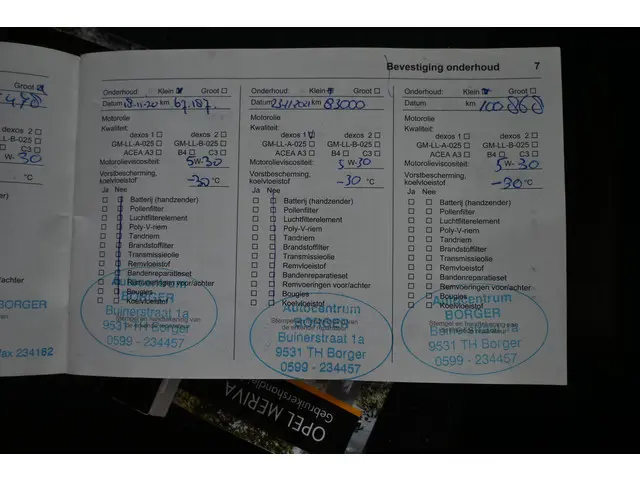 Bevestiging onderhoud 7
Groot
478
dexos 2
GM-LL-B-025
C3
W-30
°C
achter
BORGER
fax 234162
Onderhoud: Klein Groot
Datum km 67.187.
Motorolie
Kwaliteit:
dexos 1 dexos 2
GM-LL-A-025 GM-LL-B-025
ACEA A3 B4 C3
Motorolieviscositeit: 5W-30
Vorstbescherming,
koelvloeistof -30 °C
Ja Nee
Batterij (handzender)
Pollenfilter
Luchtfilterelement
Poly-V-riem
Tandriem
Brandstoffilter
Transmissieolie
Remvloeistof
Bandenreparatieset
Remvoeringen voor/achter
Bougies
Koelvloeistof
Autocentrum
BORGER
Buinerstraat 1a
9531 TH Borger
0599 - 234457
Onderhoud: Klein Groot
Datum km 83000
Motorolie
Kwaliteit:
dexos 1 dexos 2
GM-LL-A-025 GM-LL-B-025
ACEA A3 B4 C3
Motorolieviscositeit: 5W-30
Vorstbescherming,
koelvloeistof -30 °C
Ja Nee
Batterij (handzender)
Pollenfilter
Luchtfilterelement
Poly-V-riem
Tandriem
Brandstoffilter
Transmissieolie
Remvloeistof
Bandenreparatieset
Remvoeringen voor/achter
Bougies
Koelvloeistof
Autocentrum
BORGER
Buinerstraat 1a
9531 TH Borger
0599 - 234457
Onderhoud: Klein Groot
Datum km 100.868
Motorolie
Kwaliteit:
dexos 1 dexos 2
GM-LL-A-025 GM-LL-B-025
ACEA A3 B4 C3
Motorolieviscositeit: 5W-30
Vorstbescherming,
koelvloeistof -30 °C
Ja Nee
Batterij (handzender)
Pollenfilter
Luchtfilterelement
Poly-V-riem
Tandriem
Brandstoffilter
Transmissieolie
Remvloeistof
Bandenreparatieset
Remvoeringen voor/achter
Bougies
Koelvloeistof
Autocentrum
BORGER
Buinerstraat 1a
9531 TH Borger
0599 - 234457
OPEL MERIVA